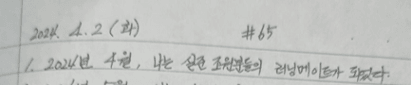 2024. 4. 2 (화) #65
1. 2024년 4월, 나는 실전 조원들의 러닝메이트가 되었다.